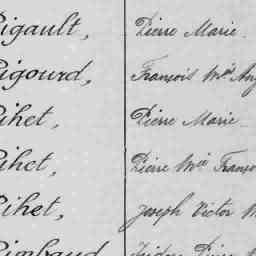 Rigault, Pierre Marie.
Rigourd, François Mie Ang
Rihet, Pierre Marie
Rihet, Pierre Mie Franço
Rihet, Joseph Victor M
Rimbaud Isidore Pierre